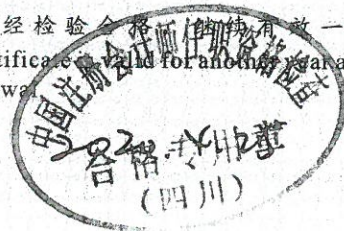 经检验合格，继续有效一
tificate valid for another year a
wal
中国注册会计师任职资格检查
合格专用章
（四川）